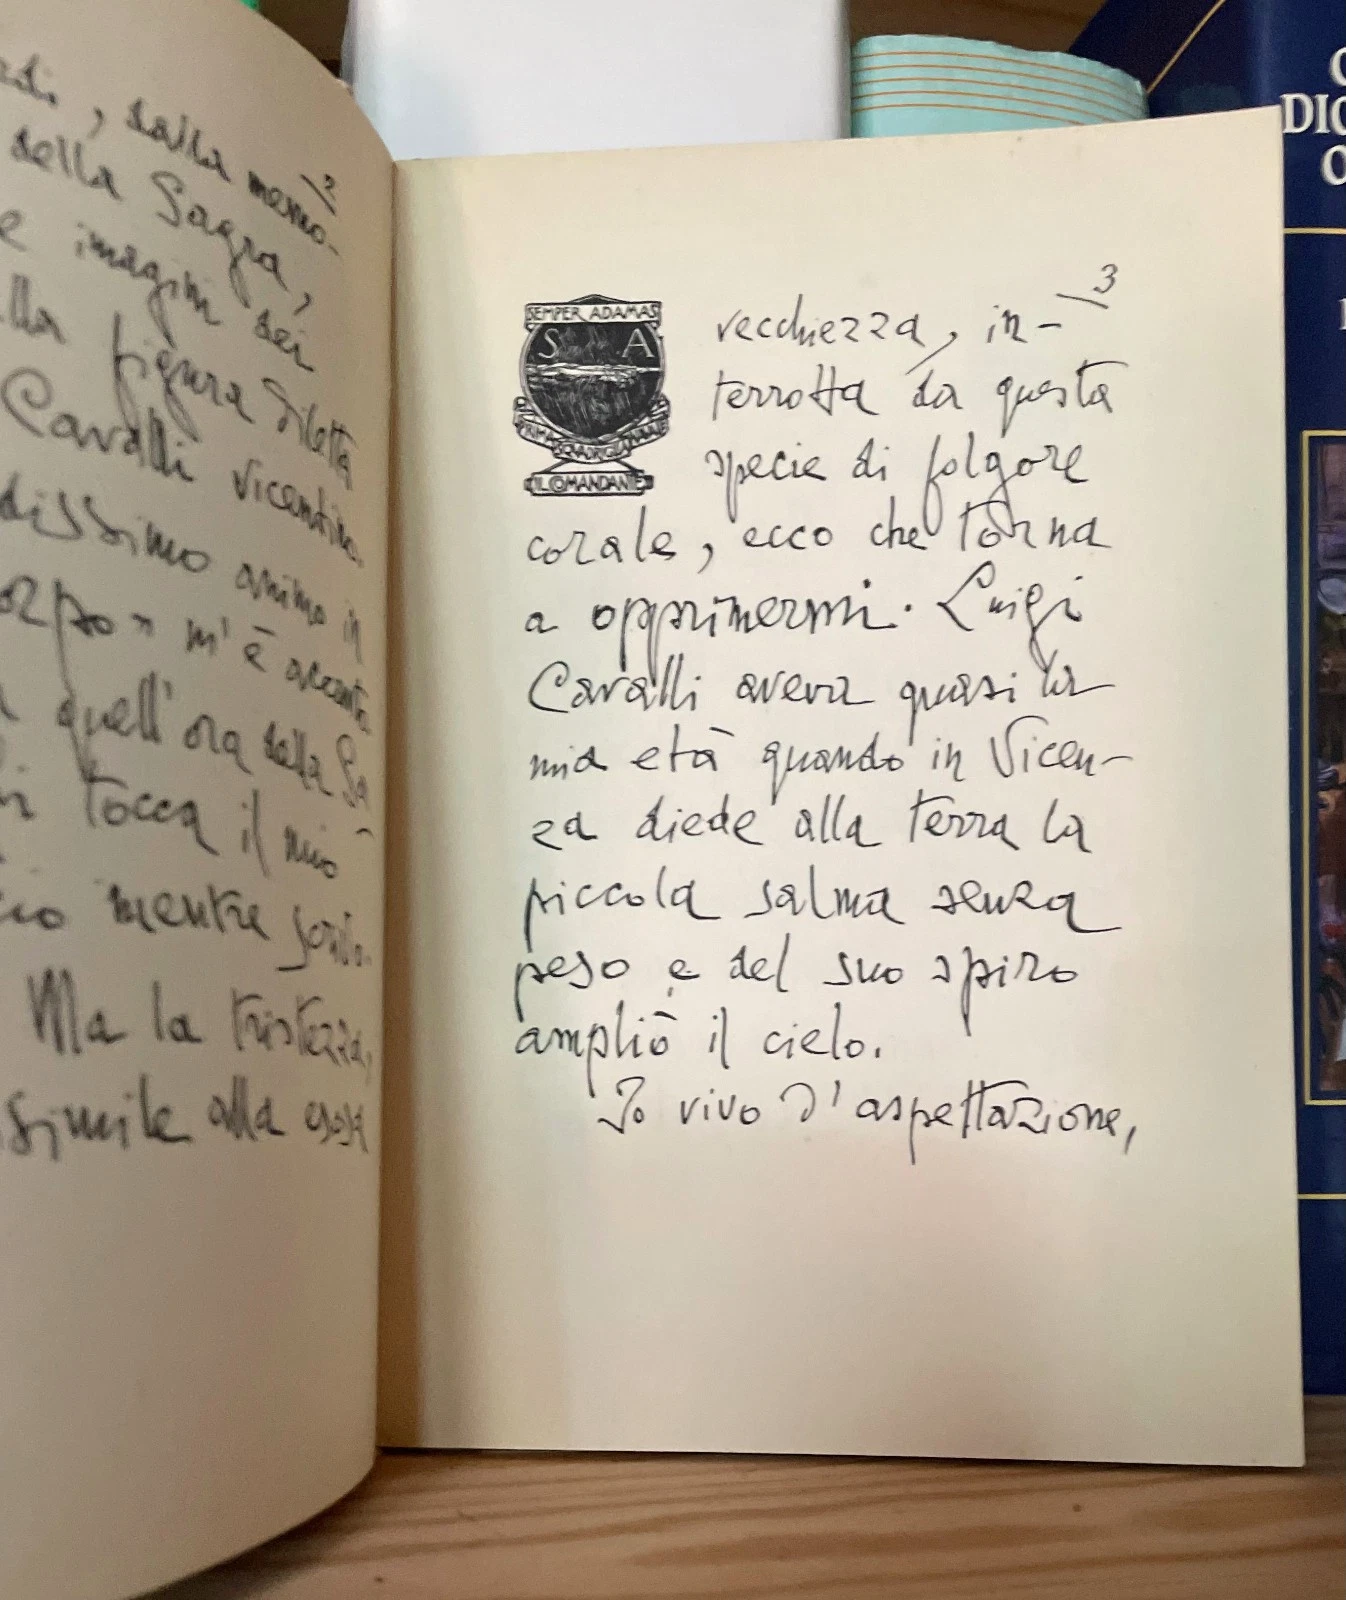 rdi, dalla memo-
2
della Sagra,
e imagini dei
lla figura diletta
Cavalli vicentino.
dissimo animo in
orpo" m'è accanto
quell'ora della Sa
tocca il mio
cio mentre scrivo.
Ma la tristezza,
simile alla essa
SEMPER ADAMAS
S A
PRIMA SQUADRIGLIA NAVALE
IL COMANDANTE
3
vecchiezza, in-
terrotta da questa
specie di folgore
corale, ecco che torna
a opprimermi. Luigi
Cavalli aveva quasi la
mia età quando in Vicen-
za diede alla terra la
piccola salma senza
peso e del suo spiro
ampliò il cielo.
Io vivo d'aspettazione,
DIC